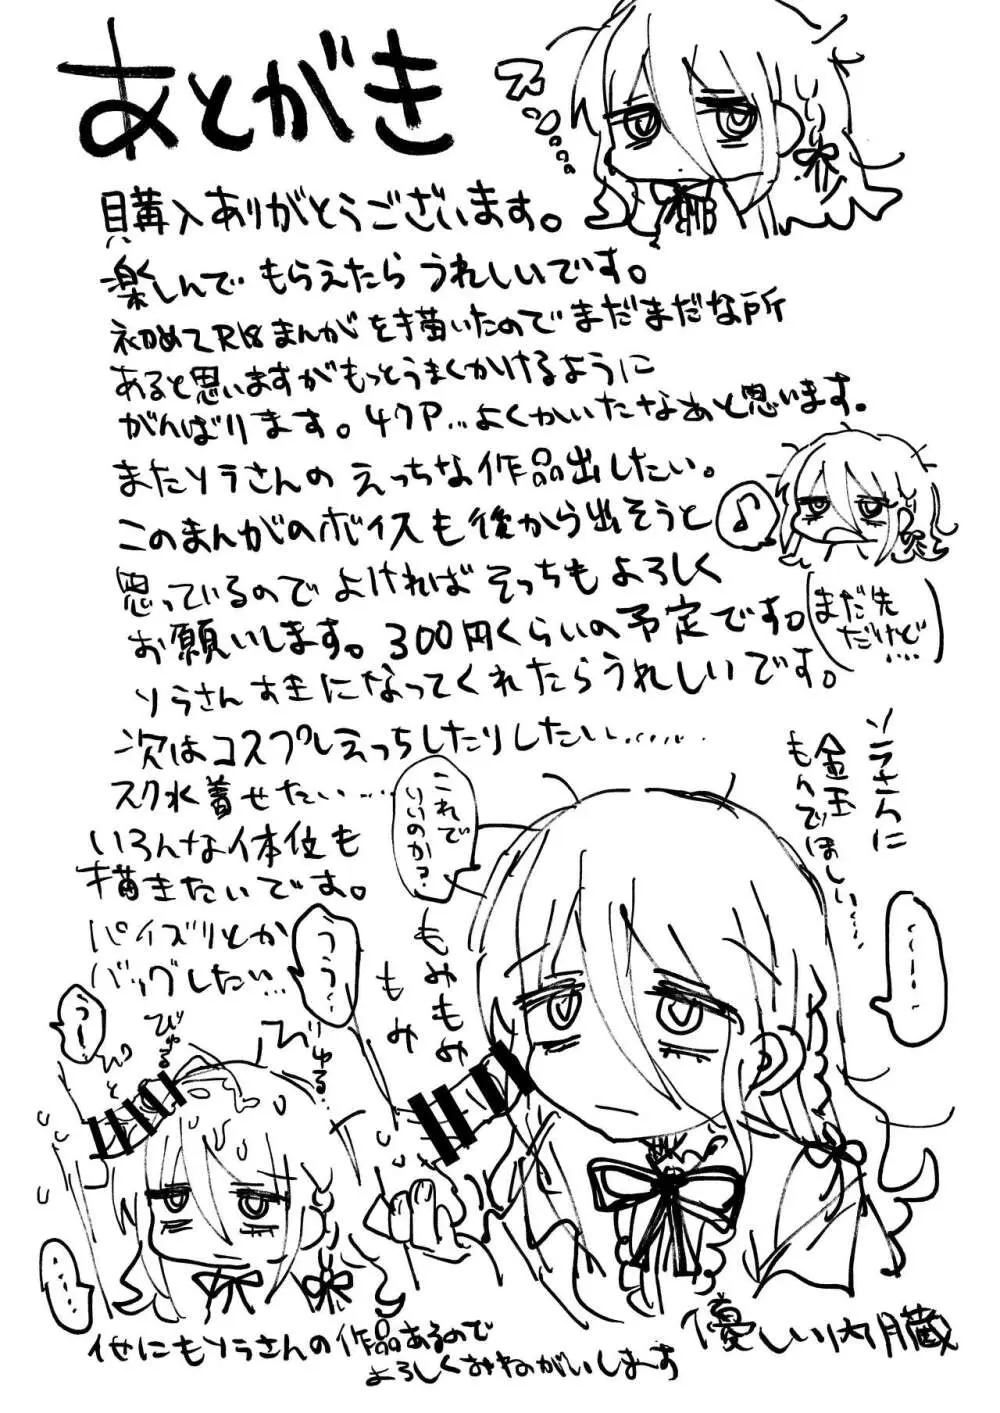 あとがき
ス
購入ありがとうございます。
楽しんで もらえたら うれしいです。
初めてR18まんがを描いたのでまだまだな所
あると思いますがもっとうまくかけるように
がんばります。47P…よくかいたなぁと思います。
またソラさんの えっちな作品出したい。
このまんがのボイスも後から出そうと
♪
思っているので よければ そっちも よろしく
お願いします。300円くらいの予定です。
(まだ先
だけど…)
ソラさん すきになってくれたらうれしいです。
次はコスプレえっちしたりしたい……
スク水着せたい…
いろんな体位も
描きたいです。
パイズリとか
バックしたい…
ソラさんに
金玉
もんでほしい…
これで
いいのか?
……
もみもみ
もみ
ううっ
うっ
びゅる
びゅる
……
他にもソラさんの作品あるので
よろしくおねがいします
優しい内臓